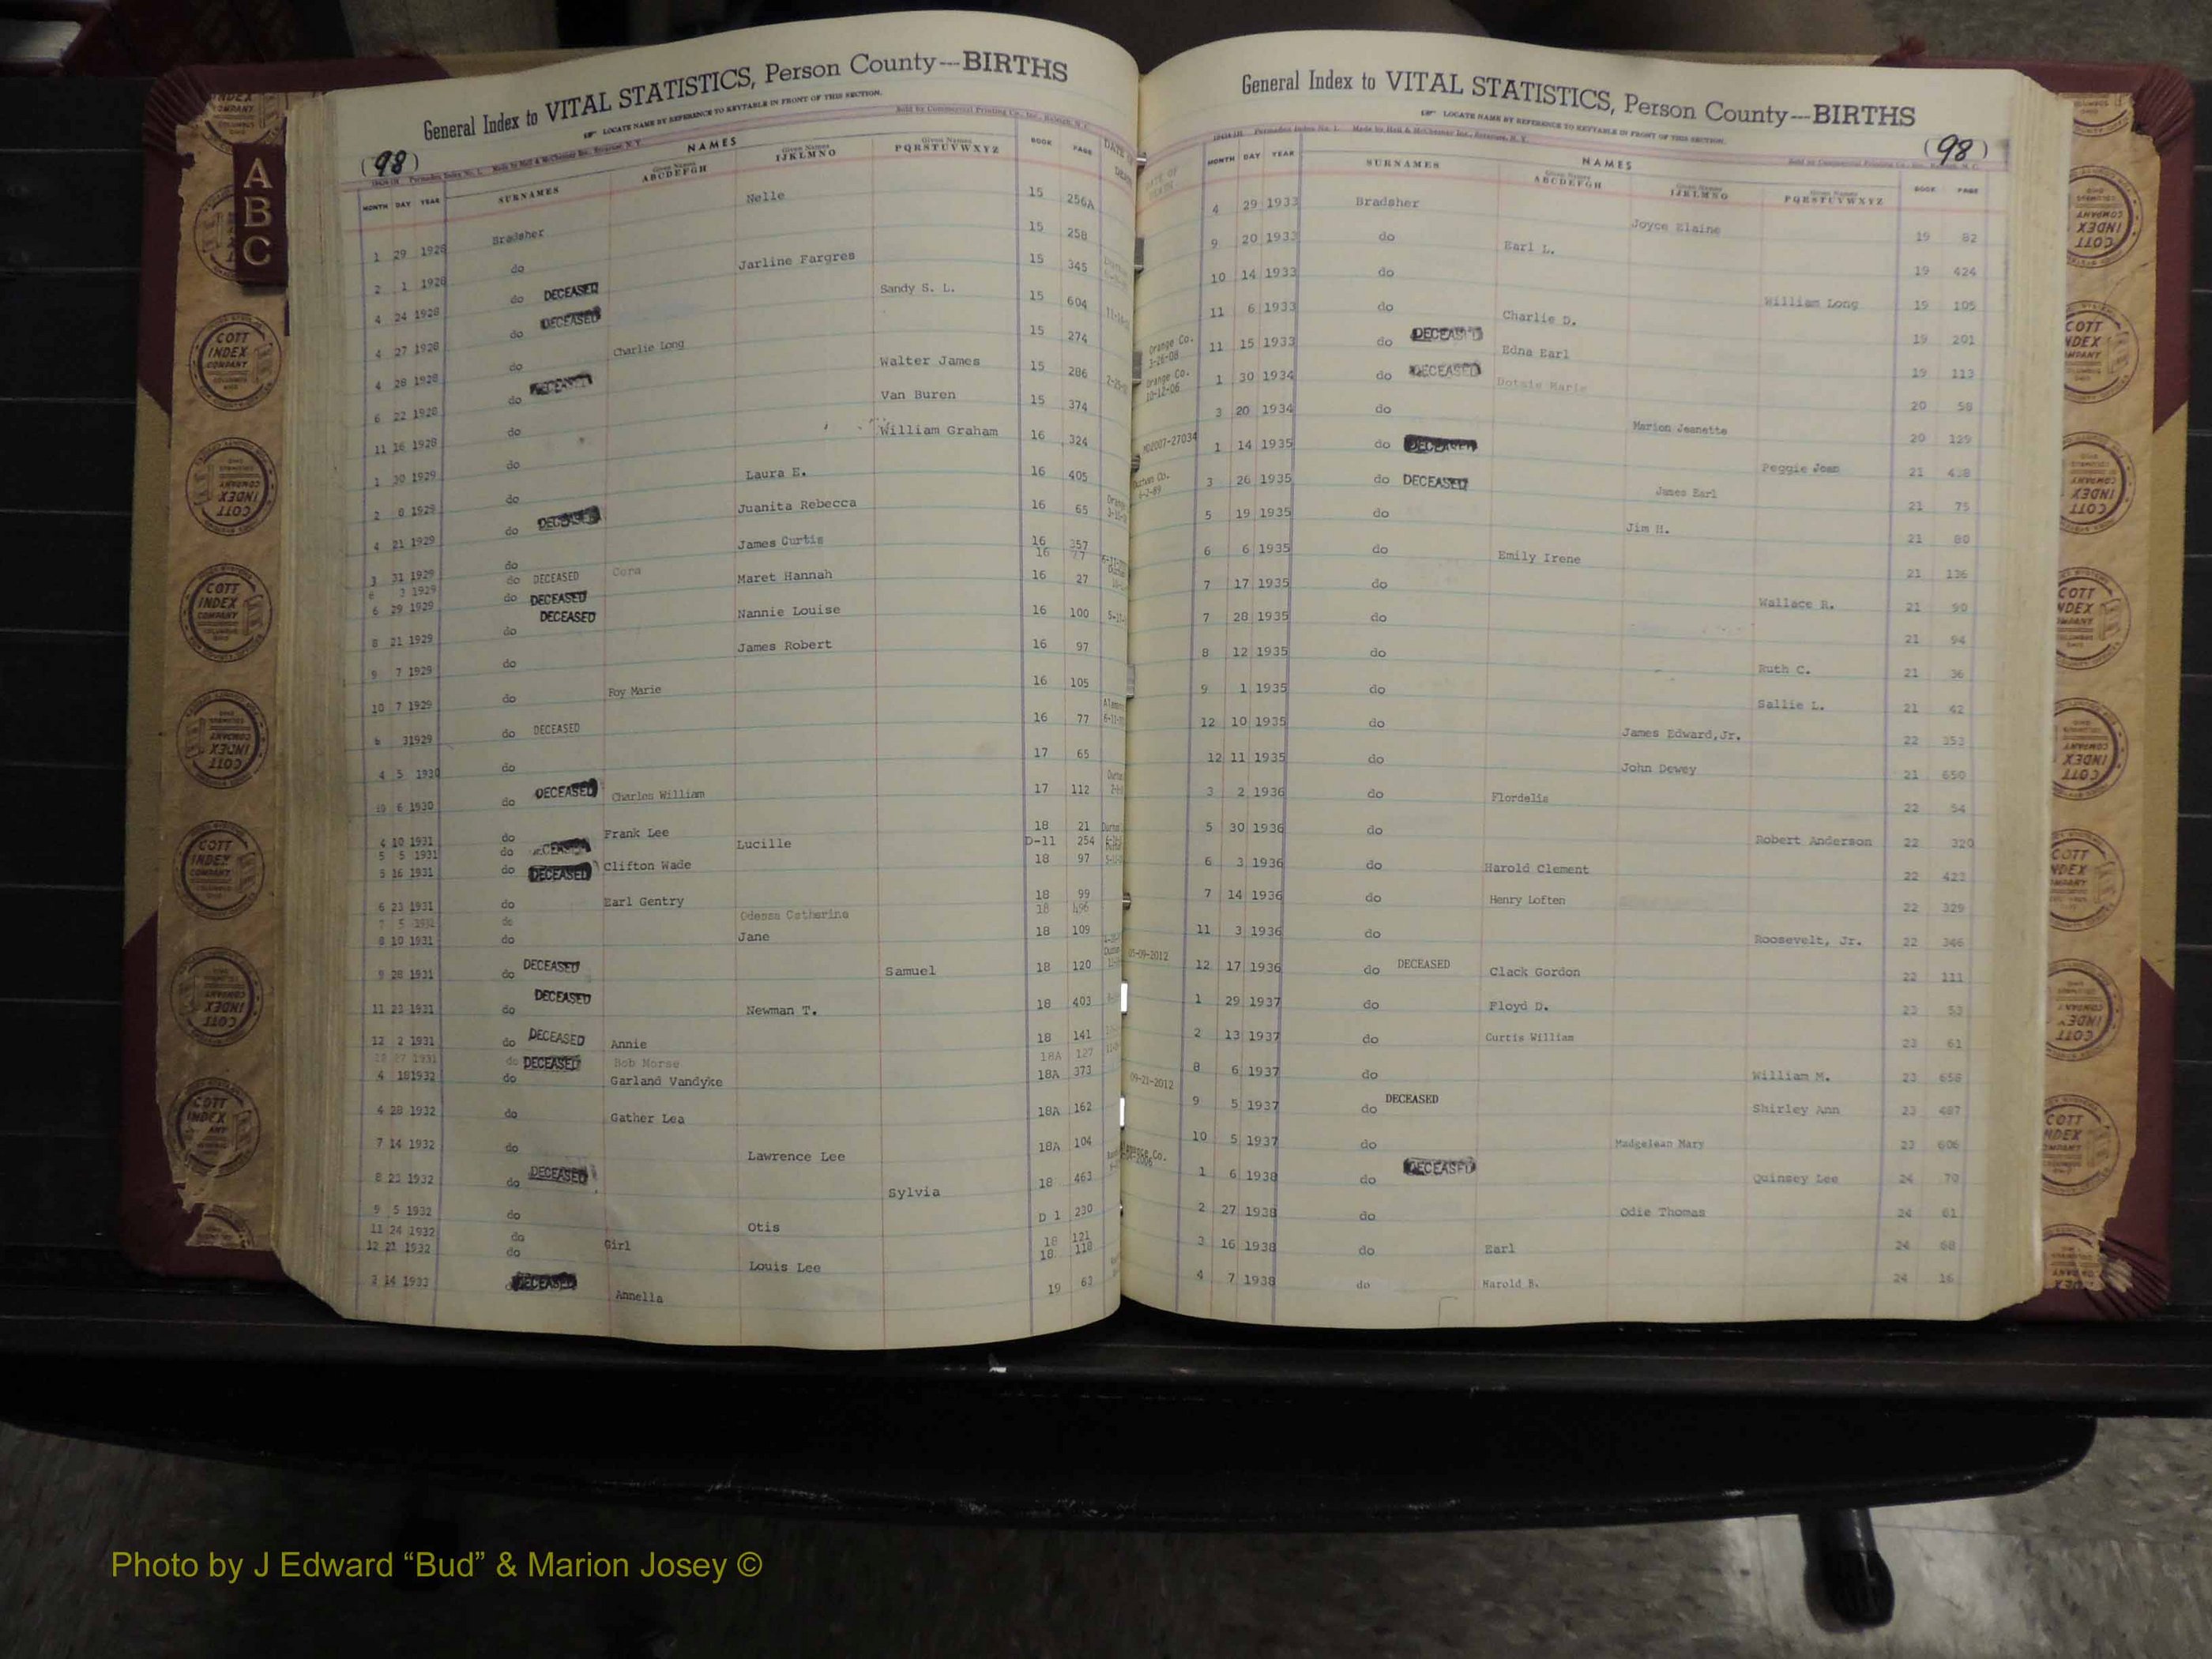 General Index to VITAL STATISTICS, Person County---BIRTHS
LOCATE NAME BY REFERENCE TO KEYTABLE IN FRONT OF THIS SECTION.
Sold by Commercial Printing Co., Inc., Raleigh, N. C.
(98)
NAMES
MONTH DAY YEAR SURNAMES Given Names ABCDEFGH Given Names IJKLMNO Given Names PQRSTUVWXYZ BOOK PAGE
1 29 1928 Bradsher Nelle 15 256A
2 1 1928 do 15 258
4 24 1928 do DECEASED Jarline Fargres 15 345
4 27 1928 do DECEASED Sandy S. L. 15 604
4 28 1928 do Charlie Long 15 274
6 22 1928 do DECEASED Walter James 15 286
11 16 1928 do Van Buren 15 374
1 30 1929 do William Graham 16 324
2 8 1929 do Laura E. 16 405
4 21 1929 do DECEASED Juanita Rebecca 16 65
3 31 1929 do James Curtis 16 357
6 3 1929 do DECEASED Cora 16 77
6 29 1929 do DECEASED Maret Hannah 16 27
8 21 1929 do DECEASED Nannie Louise 16 100
9 7 1929 do James Robert 16 97
10 7 1929 do Foy Marie 16 105
6 31929 do DECEASED 16 77
4 5 1930 do 17 65
10 6 1930 do DECEASED Charles William 17 112
4 10 1931 do Frank Lee 18 21
5 5 1931 do Lucille D-11 254
5 16 1931 do DECEASED Clifton Wade 18 97
6 23 1931 do Earl Gentry 18 99
7 5 do Odessa Catherine 18 496
8 10 1931 do Jane 18 109
9 28 1931 do DECEASED Samuel 18 120
11 23 1931 do DECEASED Newman T. 18 403
12 2 1931 do DECEASED Annie 18 141
27 1931 do DECEASED Bob Morse 18A 127
4 181932 do Garland Vandyke 18A 373
4 28 1932 do Gather Lea 18A 162
7 14 1932 do Lawrence Lee 18A 104
8 23 1932 do DECEASED Sylvia 18 463
9 5 1932 do Otis D 1 230
11 24 1932 do Girl 18 121
12 21 1932 do Louis Lee 18 118
3 14 1933 DECEASED Annella 19 63
General Index to VITAL STATISTICS, Person County---BIRTHS
LOCATE NAME BY REFERENCE TO KEYTABLE IN FRONT OF THIS SECTION.
(98)
NAMES
MONTH DAY YEAR SURNAMES Given Names ABCDEFGH Given Names IJKLMNO Given Names PQRSTUVWXYZ BOOK PAGE
4 29 1933 Bradsher Joyce Elaine 19 82
9 20 1933 do Earl L. 19 424
10 14 1933 do William Long 19 105
11 6 1933 do Charlie D. 19 201
Orange Co. 3-26-08 11 15 1933 do DECEASED Edna Earl 19 113
Orange Co. 10-12-06 1 30 1934 do DECEASED Dotsie Marie 20 58
3 20 1934 do Marion Jeanette 20 129
1 14 1935 do DECEASED Peggie Joan 21 438
3 26 1935 do DECEASED James Earl 21 75
5 19 1935 do Jim H. 21 80
6 6 1935 do Emily Irene 21 136
7 17 1935 do Wallace R. 21 90
7 28 1935 do 21 94
8 12 1935 do Ruth C. 21 36
9 1 1935 do Sallie L. 21 62
12 10 1935 do James Edward,Jr. 22 353
12 11 1935 do John Dewey 21 650
3 2 1936 do Flordelia 22 54
5 30 1936 do Robert Anderson 22 320
6 3 1936 do Harold Clement 22 423
7 14 1936 do Henry Loften 22 329
11 3 1936 do Roosevelt, Jr. 22 346
05-09-2012 12 17 1936 do DECEASED Clack Gordon 22 111
1 29 1937 do Floyd D. 23 53
2 13 1937 do Curtis William 23 61
8 6 1937 do William M. 23 658
09-21-2012 9 5 1937 do DECEASED Shirley Ann 23 487
10 5 1937 do Madgelean Mary 23 606
1 6 1938 do DECEASED Quinsey Lee 24 70
2 27 1938 do Odie Thomas 24 61
3 16 1938 do Earl 24 68
4 7 1938 do Harold B. 24 16
A
B
C
COTT INDEX COMPANY
Photo by J Edward “Bud” & Marion Josey ©